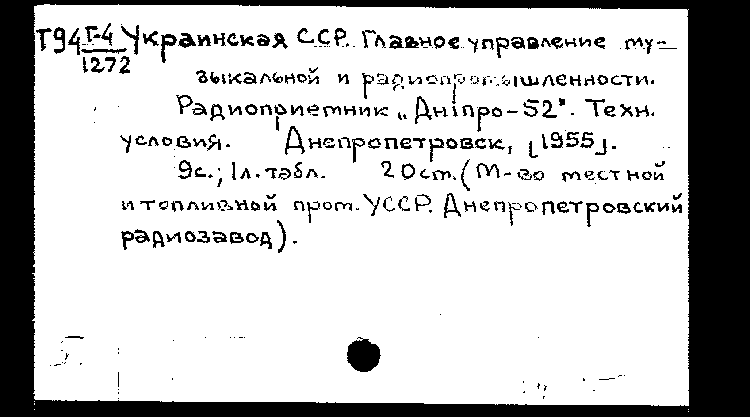 Т94 Г-4 Украинская ССР. Главное управление му-
1272
зыкальной и радиопромышленности.
Радиоприемник „Дніпро-52". Техн.
условия. Днепропетровск, [1955].
9с.; 1л. табл. 20см. (М-во местной
и топливной пром. УССР. Днепропетровский
радиозавод).